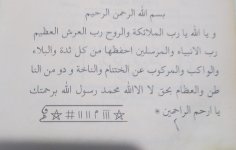 بسم الله الرحمن الرحيم
و يا الله يا رب الملائكة والروح رب العرش العظيم
رب الانبياء والمرسلين احفظها من كل شدة والبلاء
والواكب والمركوب عن الختنام والناخة و دو من النا
طن والعظام بحق لا الاالله محمد رسول الله برحمتك
يا ارحم الراحمين *